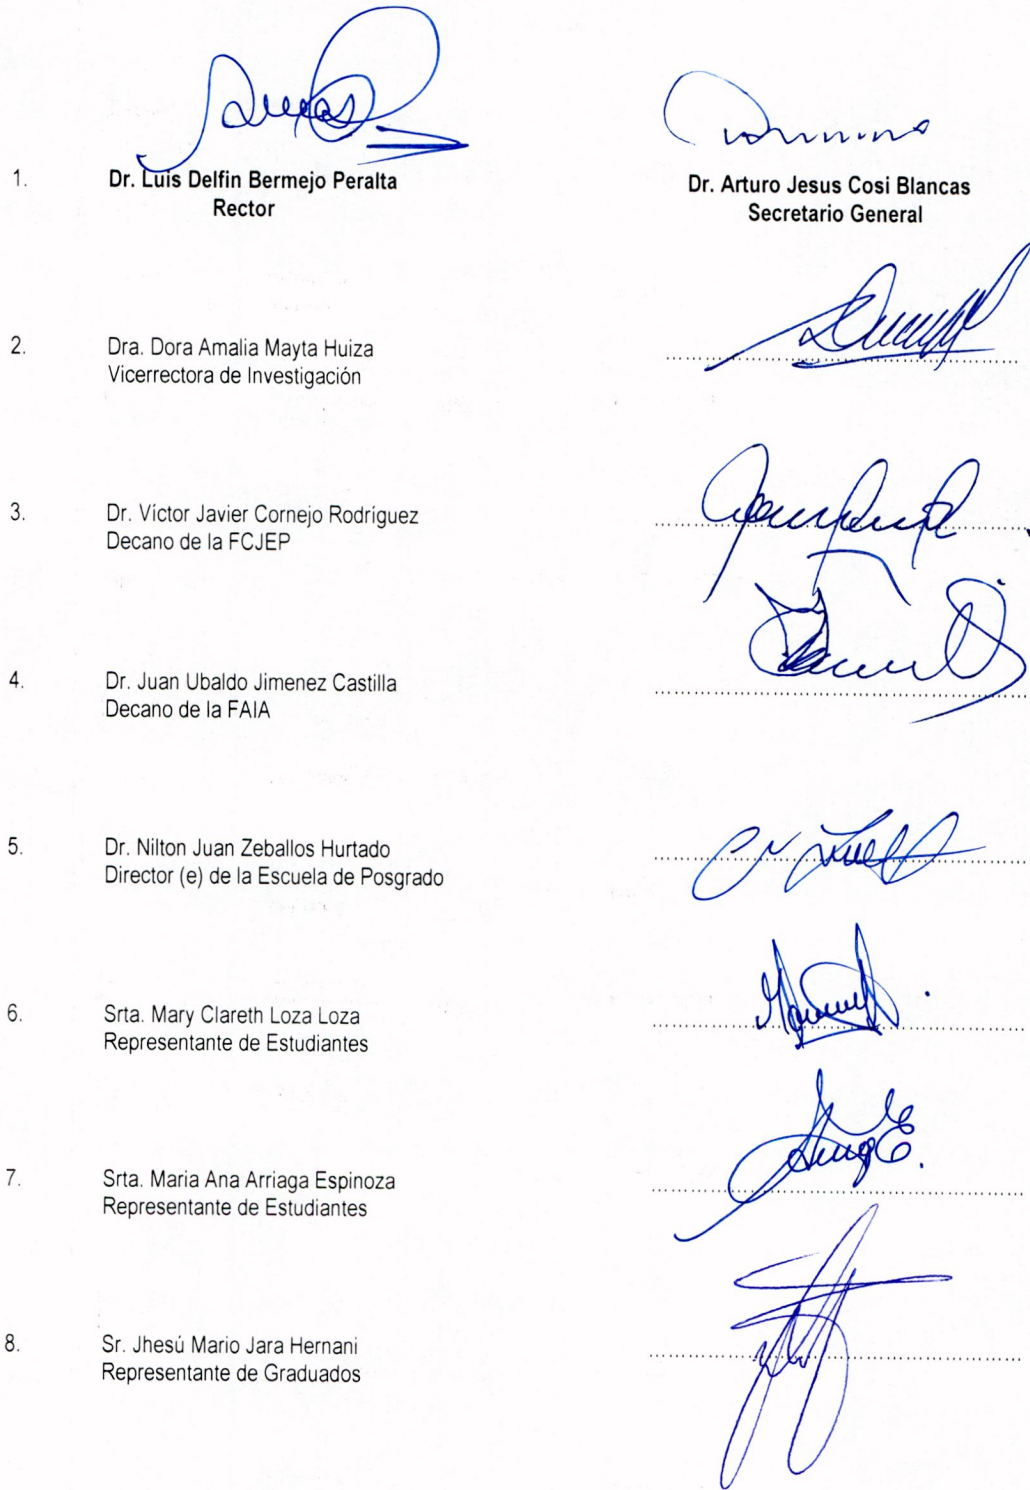 1.
Dr. Luis Delfin Bermejo Peralta
Rector
Dr. Arturo Jesus Cosi Blancas
Secretario General
2.
Dra. Dora Amalia Mayta Huiza
Vicerrectora de Investigación
3.
Dr. Víctor Javier Cornejo Rodríguez
Decano de la FCJEP
4.
Dr. Juan Ubaldo Jimenez Castilla
Decano de la FAIA
5.
Dr. Nilton Juan Zeballos Hurtado
Director (e) de la Escuela de Posgrado
6.
Srta. Mary Clareth Loza Loza
Representante de Estudiantes
7.
Srta. Maria Ana Arriaga Espinoza
Representante de Estudiantes
8.
Sr. Jhesú Mario Jara Hernani
Representante de Graduados